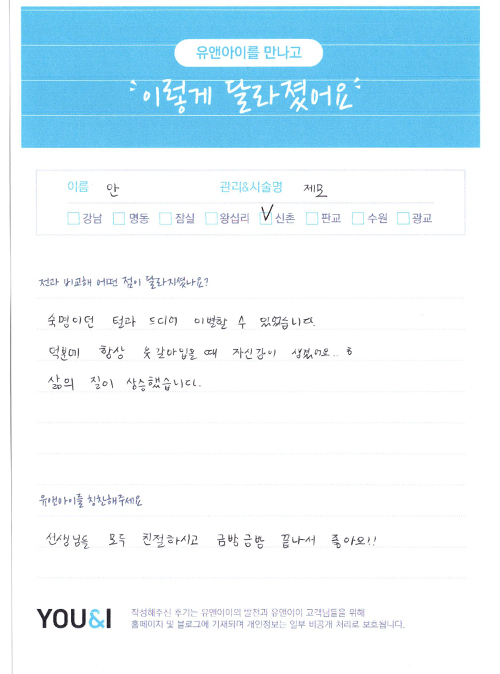 유앤아이를 만나고
이렇게 달라졌어요
이름 안 관리&시술명 제모
강남 명동 잠실 왕십리 신촌 판교 수원 광교
전과 비교해 어떤 점이 달라지셨나요?
숙명이던 털과 드디어 이별할 수 있었습니다.
덕분에 항상 옷 갈아입을 때 자신감이 생겼어요..
삶의 질이 상승했습니다.
유앤아이를 칭찬해주세요
선생님들 모두 친절하시고 금방금방 끝나서 좋아요!!
YOU&I
작성해주신 후기는 유앤아이의 발전과 유앤아이 고객님들을 위해
홈페이지 및 블로그에 기재되며 개인정보는 일부 비공개 처리로 보호됩니다.